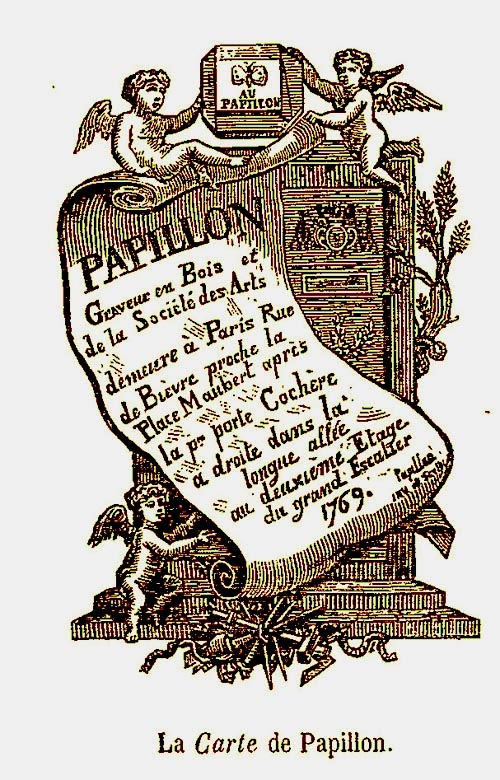 AU
PAPILLON
PAPILLON
Graveur en Bois et
de la Société des Arts
demeure à Paris Rue
de Bièvre proche la
Place Maubert après
la pre porte Cochère
à droite dans la
longue allée
au deuxième Etage
du grand Escalier
1769.
Papillon
La Carte de Papillon.